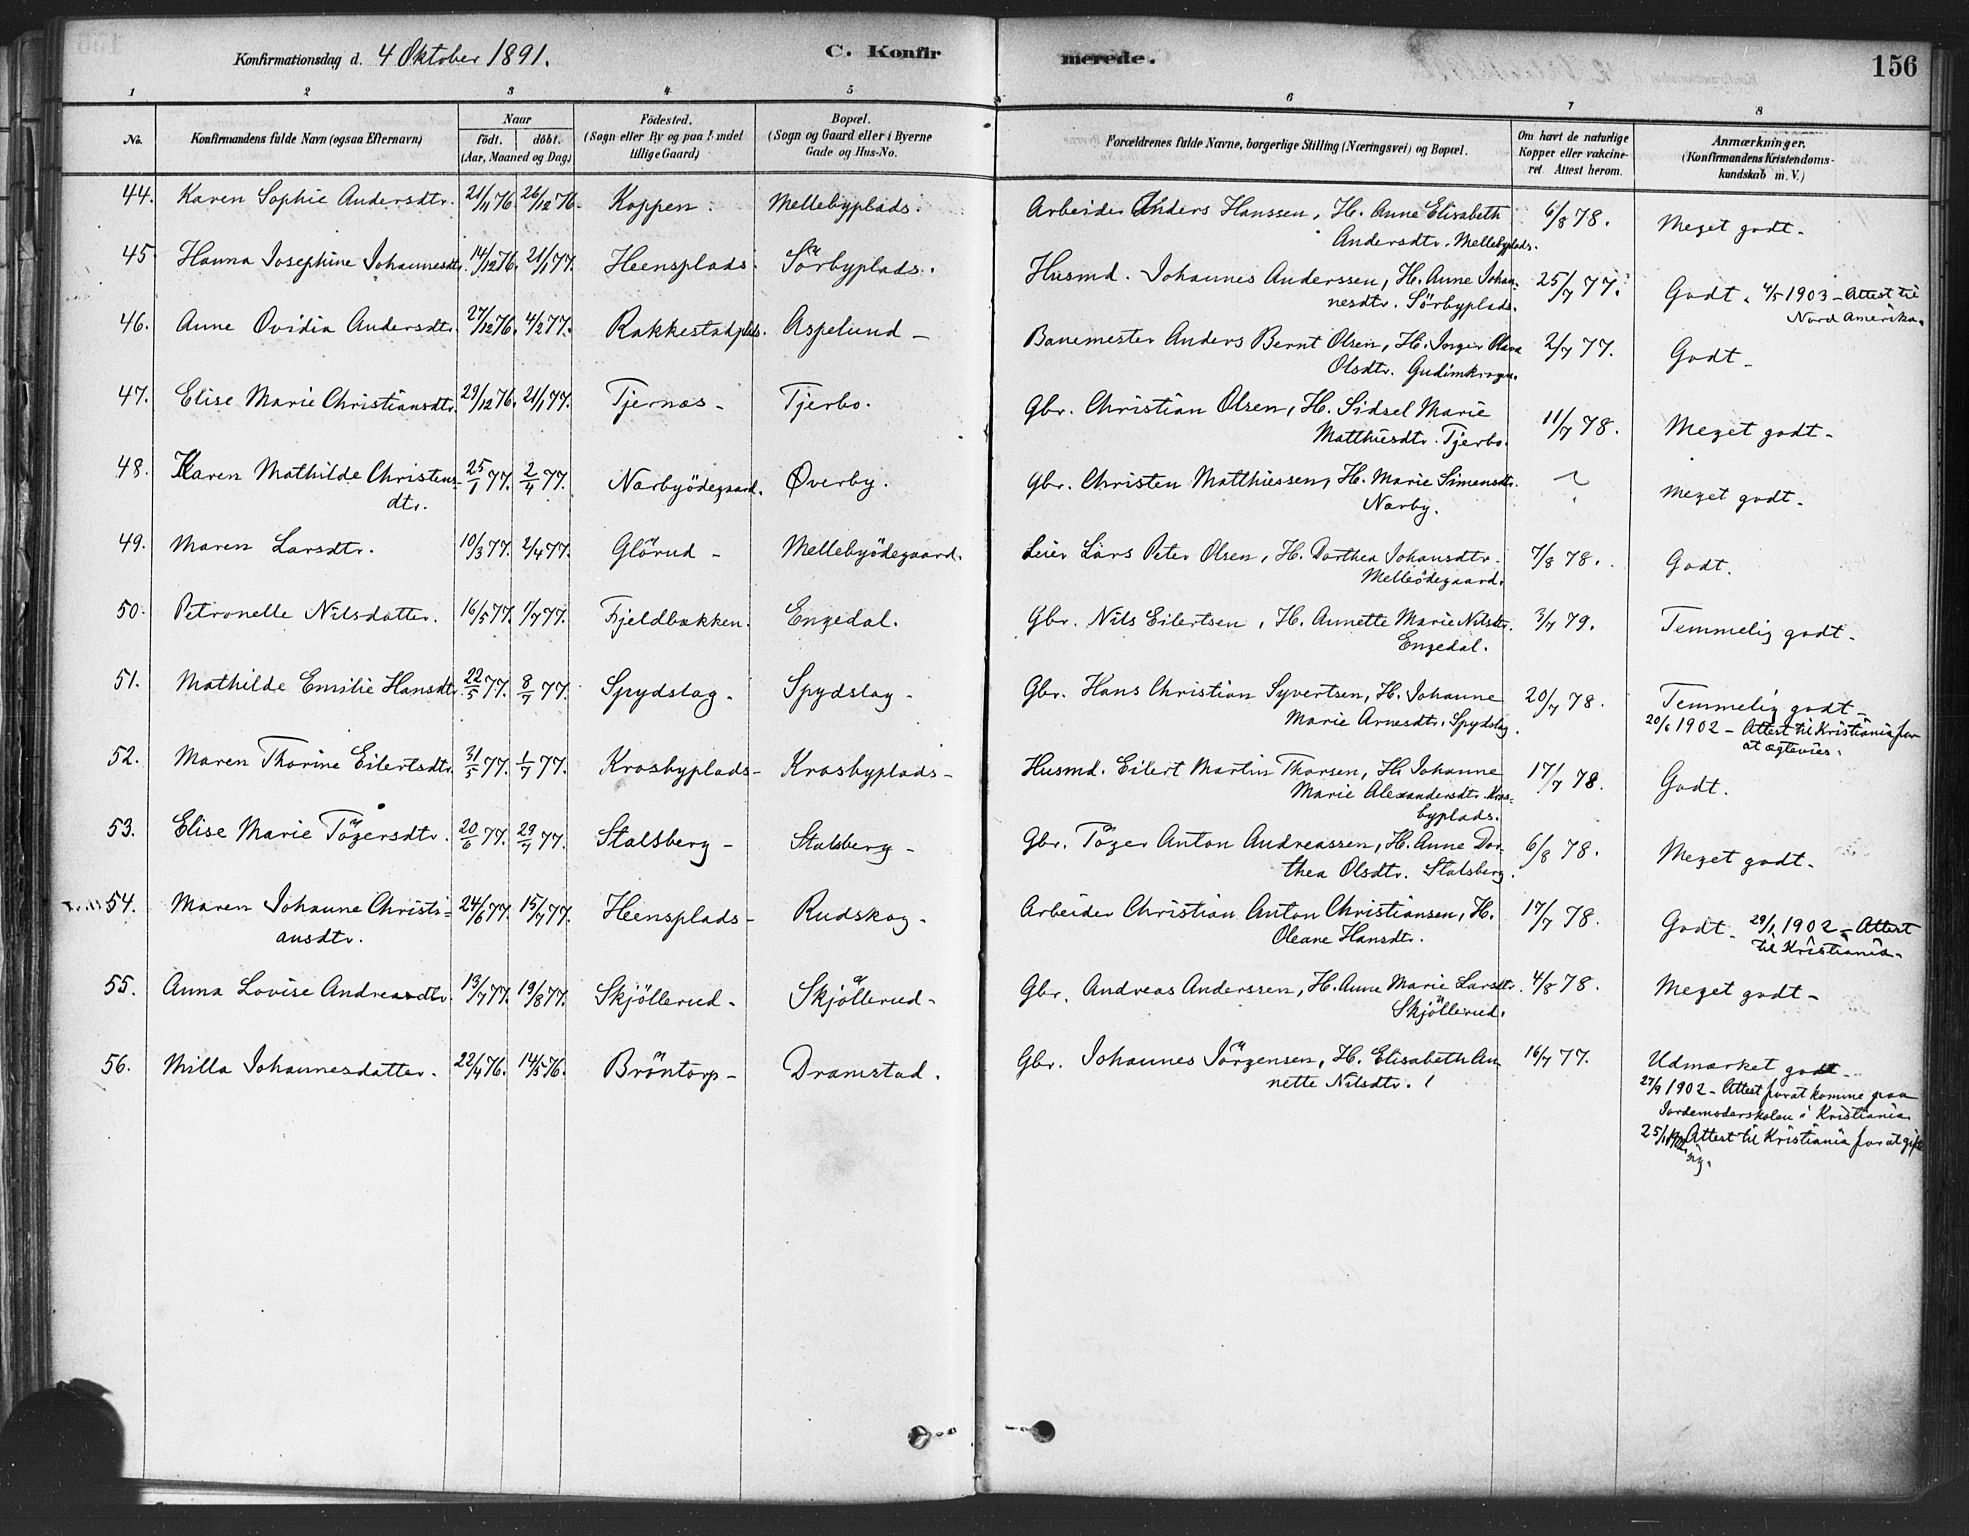 Konfirmationsdag d. 4 Oktober 1891. C. Konfirmerede. 156
1 2 3 4 5 6 7 8
No. Konfirmandens fulde Navn (ogsaa Efternavn) Naar født. døbt. (Aar, Maaned og Dag) Födested. (Sogn eller By og paa Landet tillige Gaard) Bopæl. (Sogn og Gaard eller i Byerne Gade og Hus-No. Forældrenes fulde Navne, borgerlige Stilling (Næringsvei) og Bopæl. Om havt de naturlige Kopper eller vakcineret. Attest herom. Anmærkninger. (Konfirmandens Kristendomskundskab m. V.)
44. Karen Sophie Andersdtr. 21/11 76. 26/12 76. Koppen. Mellebyplads. Arbeider Anders Hanssen, H. Anne Elisabeth 6/8 78. Meget godt.
Andersdtr. Mellebyplads.
45. Hanna Josephine Johannesdtr. 14/12 76. 21/1 77. Heensplads. Sörbyplads. Husmd. Johannes Anderssen, H. Anne Johan- 25/7 77. Godt. 4/5 1903 - Attest til
nesdtr. Sörbyplads. Nord Amerika.
46. Anne Ovidia Andersdtr. 27/12 76. 4/2 77. Rakkestadplds. Aspelund - Banemester Anders Bernt Olsen, H. Inger Olava 2/7 77. Godt -
Olsdtr. Gudimkrogen.
47. Elise Marie Christiansdtr. 29/12 76. 21/1 77. Tjernæs - Tjerbo. Gbr. Christian Olsen, H. Sidsel Marie 11/7 78. Meget godt -
Matthisdtr. Tjerbo.
48. Karen Mathilde Christens- 25/1 77. 2/4 77. Nærbyödegaard. Øverby. Gbr. Christen Matthiessen, H. Marie Simensdtr. ? Meget godt -
dtr. Nærby.
49. Maren Larsdtr. 10/3 77. 2/4 77. Glörud - Mellebyödegaard. Leier Lars Peter Olsen, H. Dorthea Johansdtr. 7/8 78. Godt.
Melleödegaard.
50. Petronelle Nilsdatter. 16/5 77. 1/7 77. Fjeldbakken. Engedal. Gbr. Nils Eilertsen, H. Annette Marie Nilsdtr. 3/7 79. Temmelig godt -
Engedal.
51. Mathilde Emilie Hansdtr. 22/5 77. 8/7 77. Spydslag - Spydslag - Gbr. Hans Christian Syvertsen, H. Johanne 20/7 78. Temmelig godt -
Marie Arnesdtr. Spydslag. 20/6 1902 - Attest til Kristiania for
at ægtevies.
52. Maren Thorine Eilertsdtr. 31/5 77. 1/7 77. Krosbyplads - Krosbyplads - Husmd. Eilert Martin Thorsen, H. Johanne 17/7 78. Godt.
Marie Alexandersdtr. Kros-
byplads.
53. Elise Marie Tögersdtr. 20/6 77. 29/7 77. Stalsberg - Stalsberg - Gbr. Töger Anton Andreassen, H. Anne Dor- 6/8 78. Meget godt -
thea Olsdtr. Stalsberg.
54. Maren Johanne Christi- 24/6 77. 15/7 77. Heensplads - Rudskog - Arbeider Christian Anton Christiansen, H. 17/7 78. Godt. 29/1 1902 - Attest
ansdtr. Oleane Hansdtr. til Kristiania.
55. Anna Lovise Andreasdtr. 13/7 77. 19/8 77. Skjöllerud - Skjöllerud - Gbr. Andreas Anderssen, H. Anne Marie Larsdtr. 4/8 78. Meget godt -
Skjöllerud.
56. Milla Johannesdatter. 22/4 76. 14/5 76. Bröntorp - Dramstad. Gbr. Johannes Jörgensen, H. Elisabeth An- 16/7 77. Udmærket godt -
nette Nilsdtr. 27/9 1902 - Attest for at komme paa
Jordemoderskolen i Kristiania.
25/1 Attest til Kristiania for at gifte
sig.